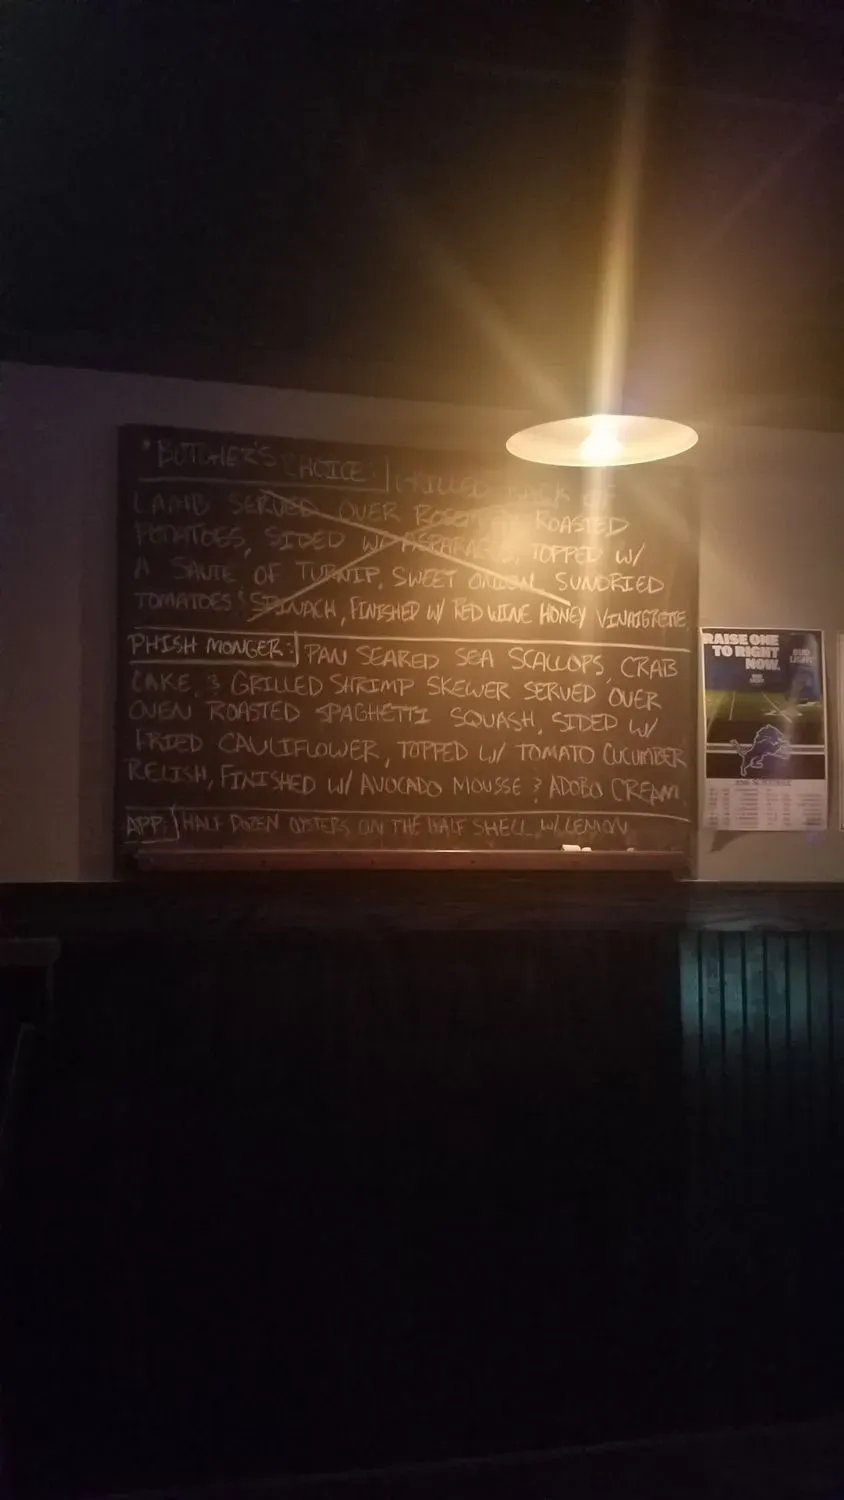 * BUTCHER'S CHOICE: GRILLED RACK OF
LAMB SERVED OVER ROSEMARY ROASTED
POTATOES, SIDED W/ ASPARAGUS, TOPPED W/
A SAUTE OF TURNIP, SWEET ONION, SUNDRIED
TOMATOES & SPINACH, FINISHED W/ RED WINE HONEY VINAIGRETTE
PHISH MONGER: PAN SEARED SEA SCALLOPS, CRAB
CAKE, & GRILLED SHRIMP SKEWER SERVED OVER
OVEN ROASTED SPAGHETTI SQUASH, SIDED W/
FRIED CAULIFLOWER, TOPPED W/ TOMATO CUCUMBER
RELISH, FINISHED W/ AVOCADO MOUSSE & ADOBO CREAM
APP: HALF DOZEN OYSTERS ON THE HALF SHELL W/ LEMON
RAISE ONE
TO RIGHT
NOW.
BUD
LIGHT
SCHEDULE